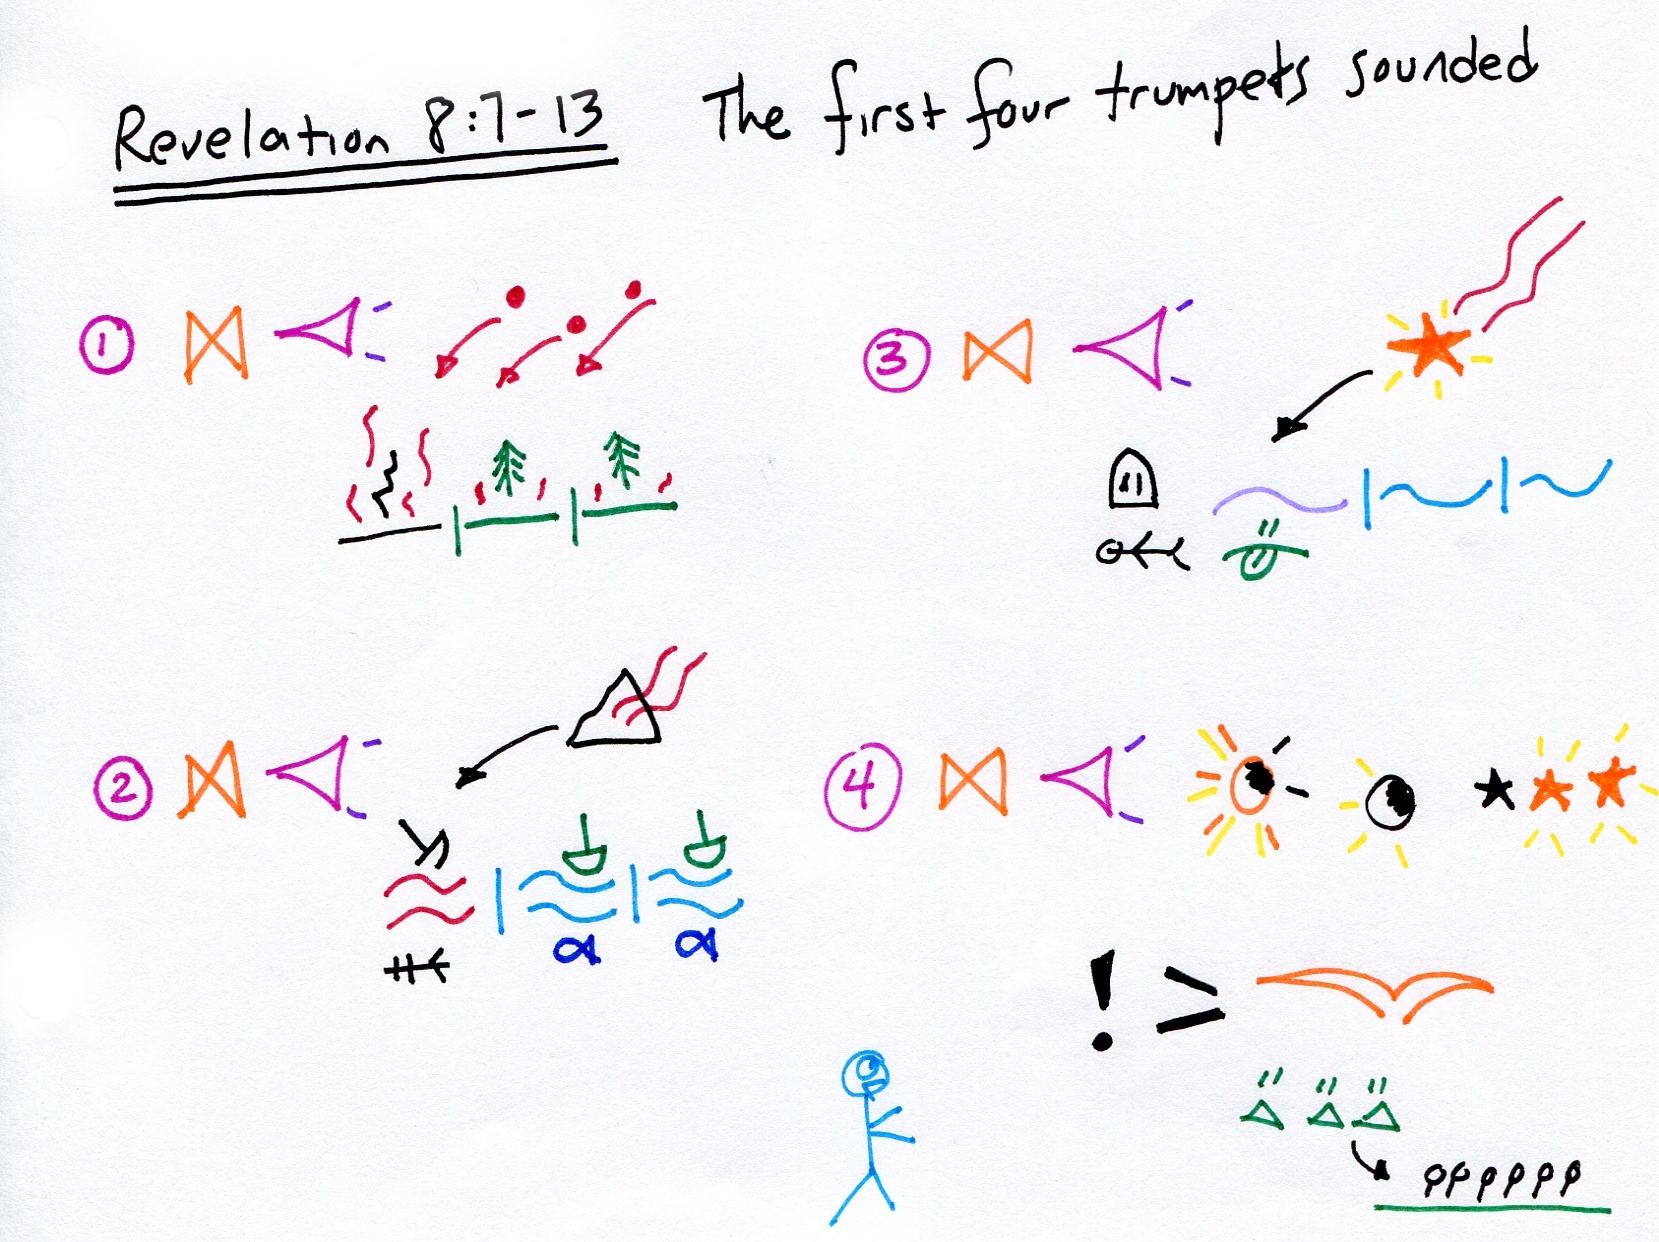 Revelation 8:7-13 The first four trumpets sounded
1
3
2
4
!